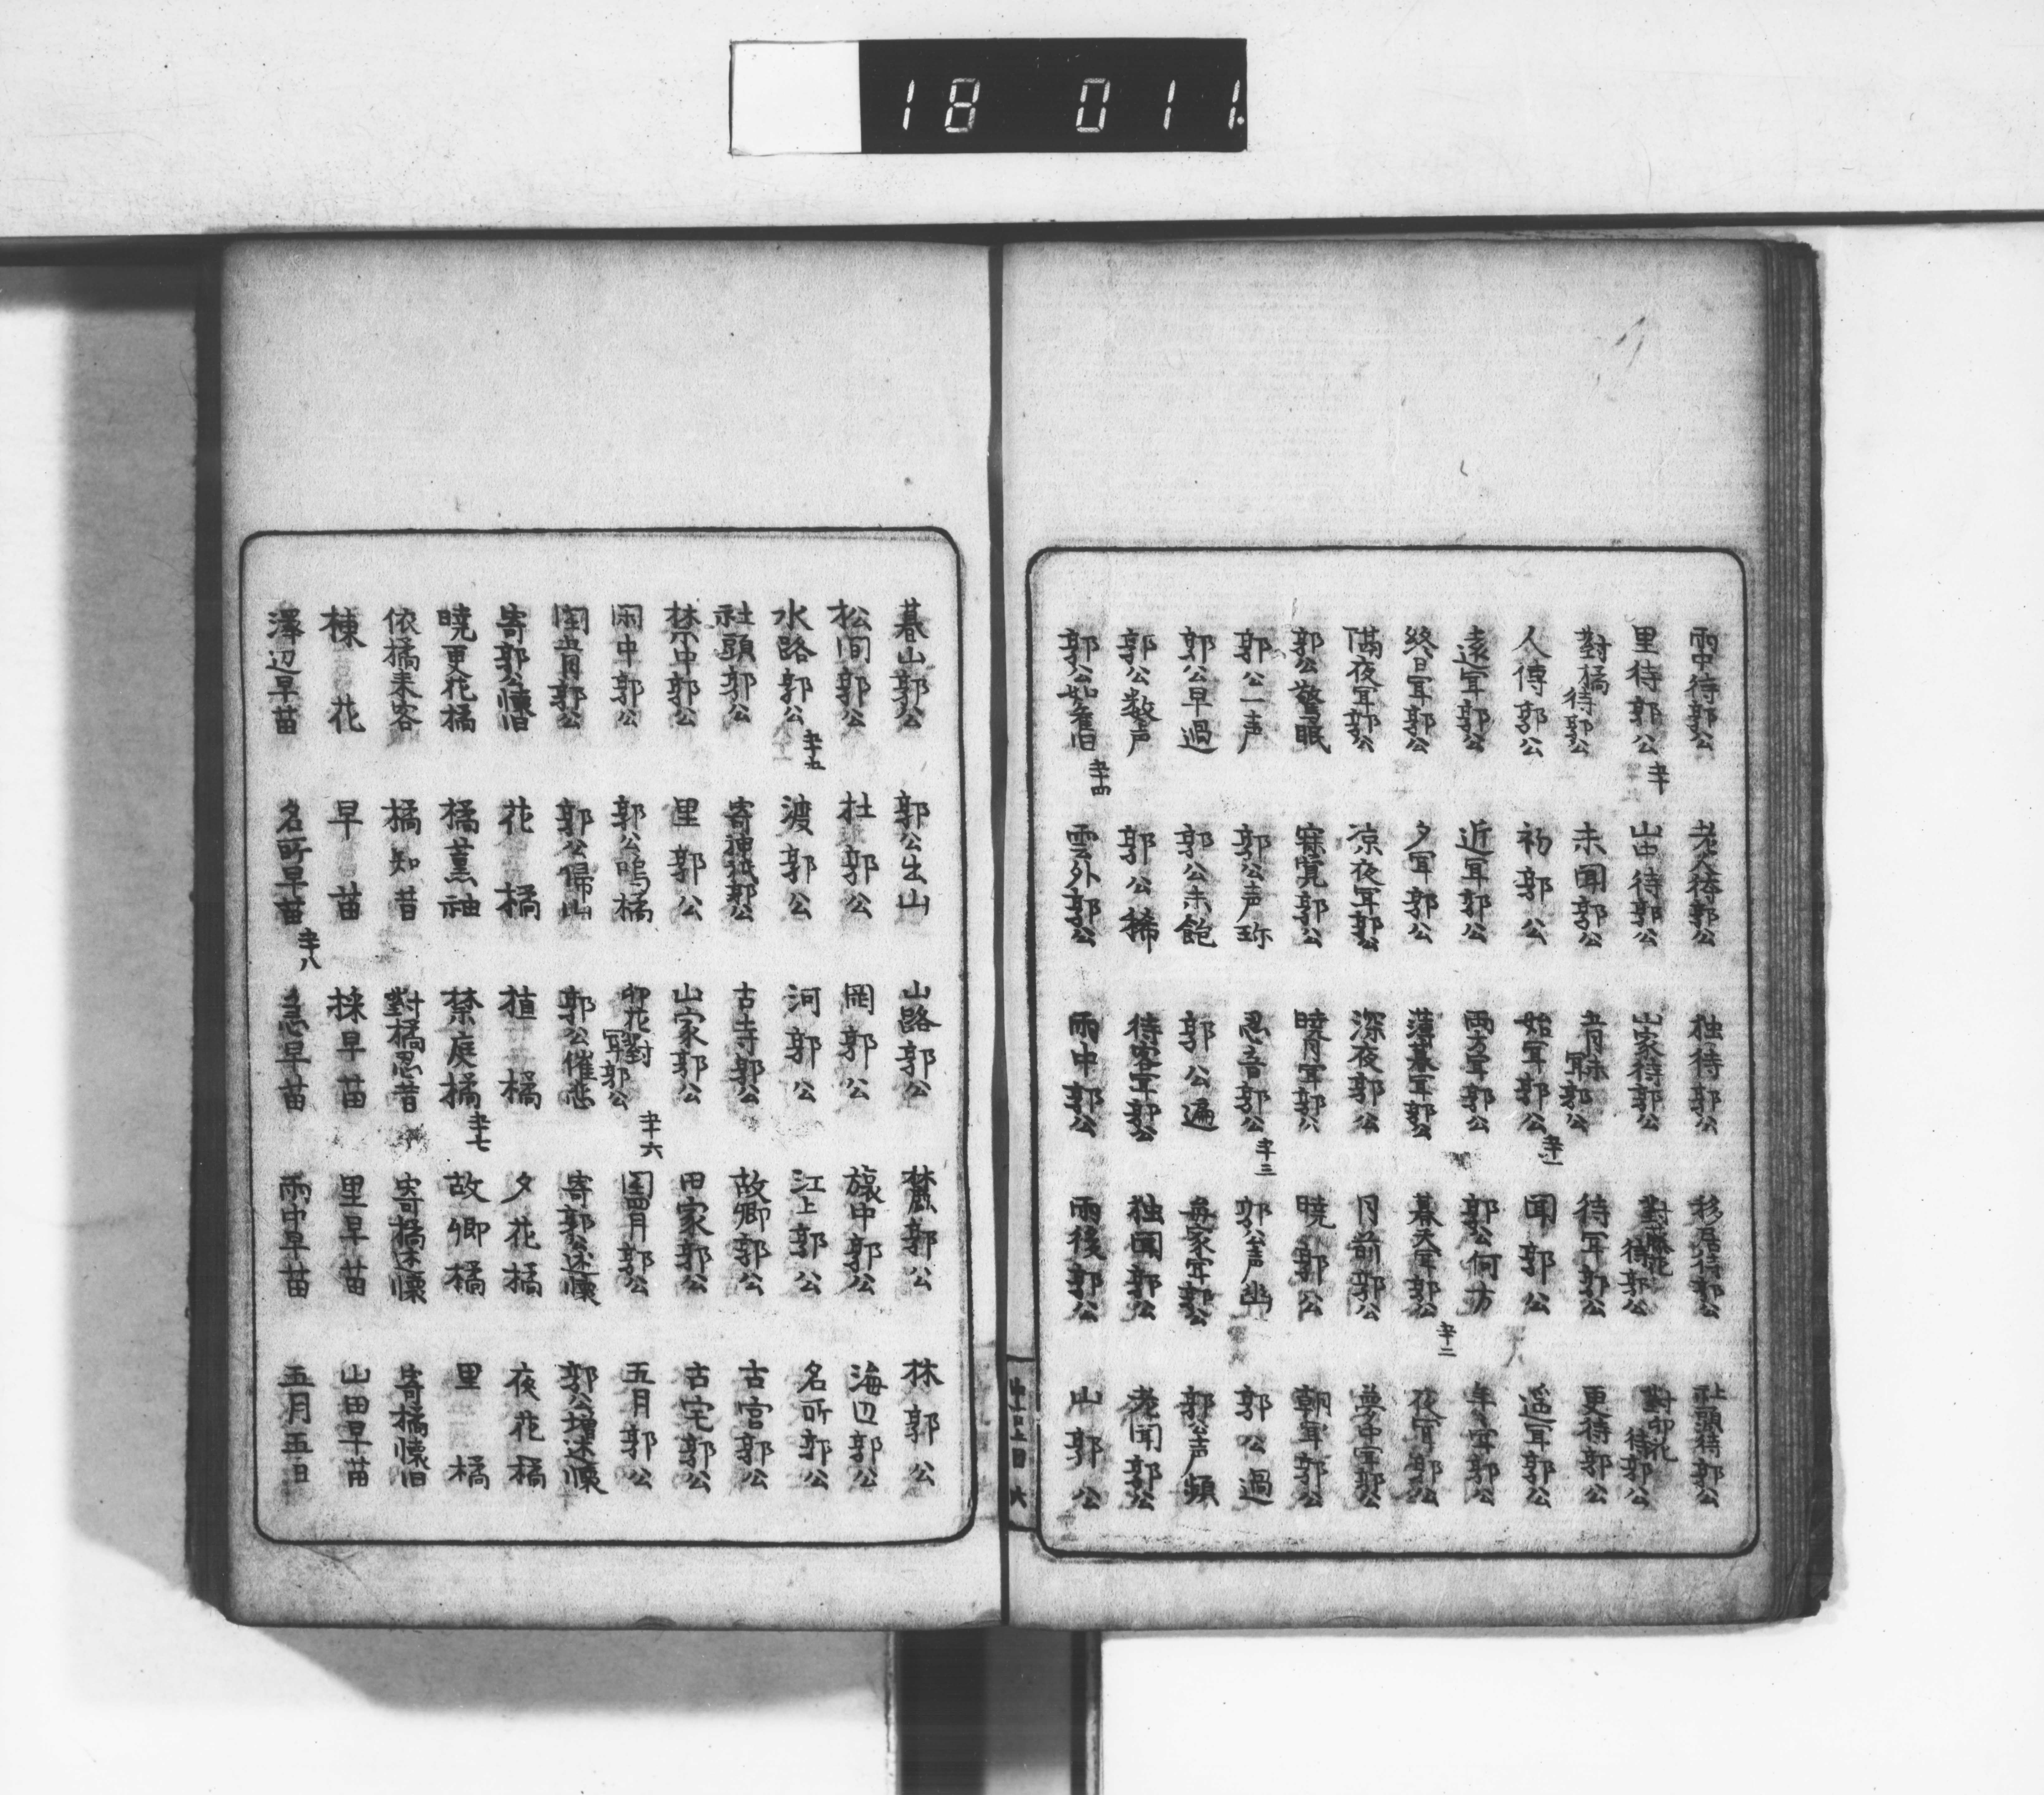 18 011.
雨中待郭公 老人待郭公 独待郭公 移居待郭公 社頭待郭公
里待郭公 山中待郭公 山家待郭公 對藤花待郭公 對卯花待郭公
對橘待郭公 未聞郭公 郭公 待耳郭公 更待郭公
人傳郭公 初郭公 始耳郭公 聞郭公 遥耳郭公
遠耳郭公 近耳郭公 両方耳郭公 郭公何方 年耳郭公
終日耳郭公 夕耳郭公 薄暮耳郭公 暮天耳郭公 夜耳郭公
隔夜耳郭公 凉夜耳郭公 深夜郭公 月前郭公 夢中耳郭公
郭公驚眠 寐覚郭公 暁月耳郭公 暁郭公 朝耳郭公
郭公一声 郭公声珎 忍音郭公 郭公声幽 郭公過
郭公早過 郭公未飽 郭公遍 毎家耳郭公 郭公声頻
郭公数声 郭公稀 待客耳郭公 独聞郭公 老聞郭公
郭公如旧 雲外郭公 雨中郭公 雨後郭公 山郭公
暮山郭公 郭公出山 山路郭公 麓郭公 林郭公
松間郭公 杜郭公 岡郭公 旅中郭公 海辺郭公
水路郭公 渡郭公 河郭公 江上郭公 名所郭公
社頭郭公 寄神祇郭公 古寺郭公 故郷郭公 古宮郭公
禁中郭公 里郭公 山家郭公 田家郭公 古宅郭公
閑中郭公 郭公鳴橘 卯花對耳郭公 閏四月郭公 五月郭公
閏五月郭公 郭公帰山 郭公催恋 寄郭公述懐 郭公増述懐
寄郭公懐旧 花橘 植橘 夕花橘 夜花橘
暁更花橘 橘薫袖 禁庭橘 故郷橘 里橘
依橘来客 橘知昔 對橘忍昔 寄橘述懐 寄橘懐旧
棟花 早苗 採早苗 里早苗 山田早苗
澤辺早苗 名所早苗 急早苗 雨中早苗 五月五日